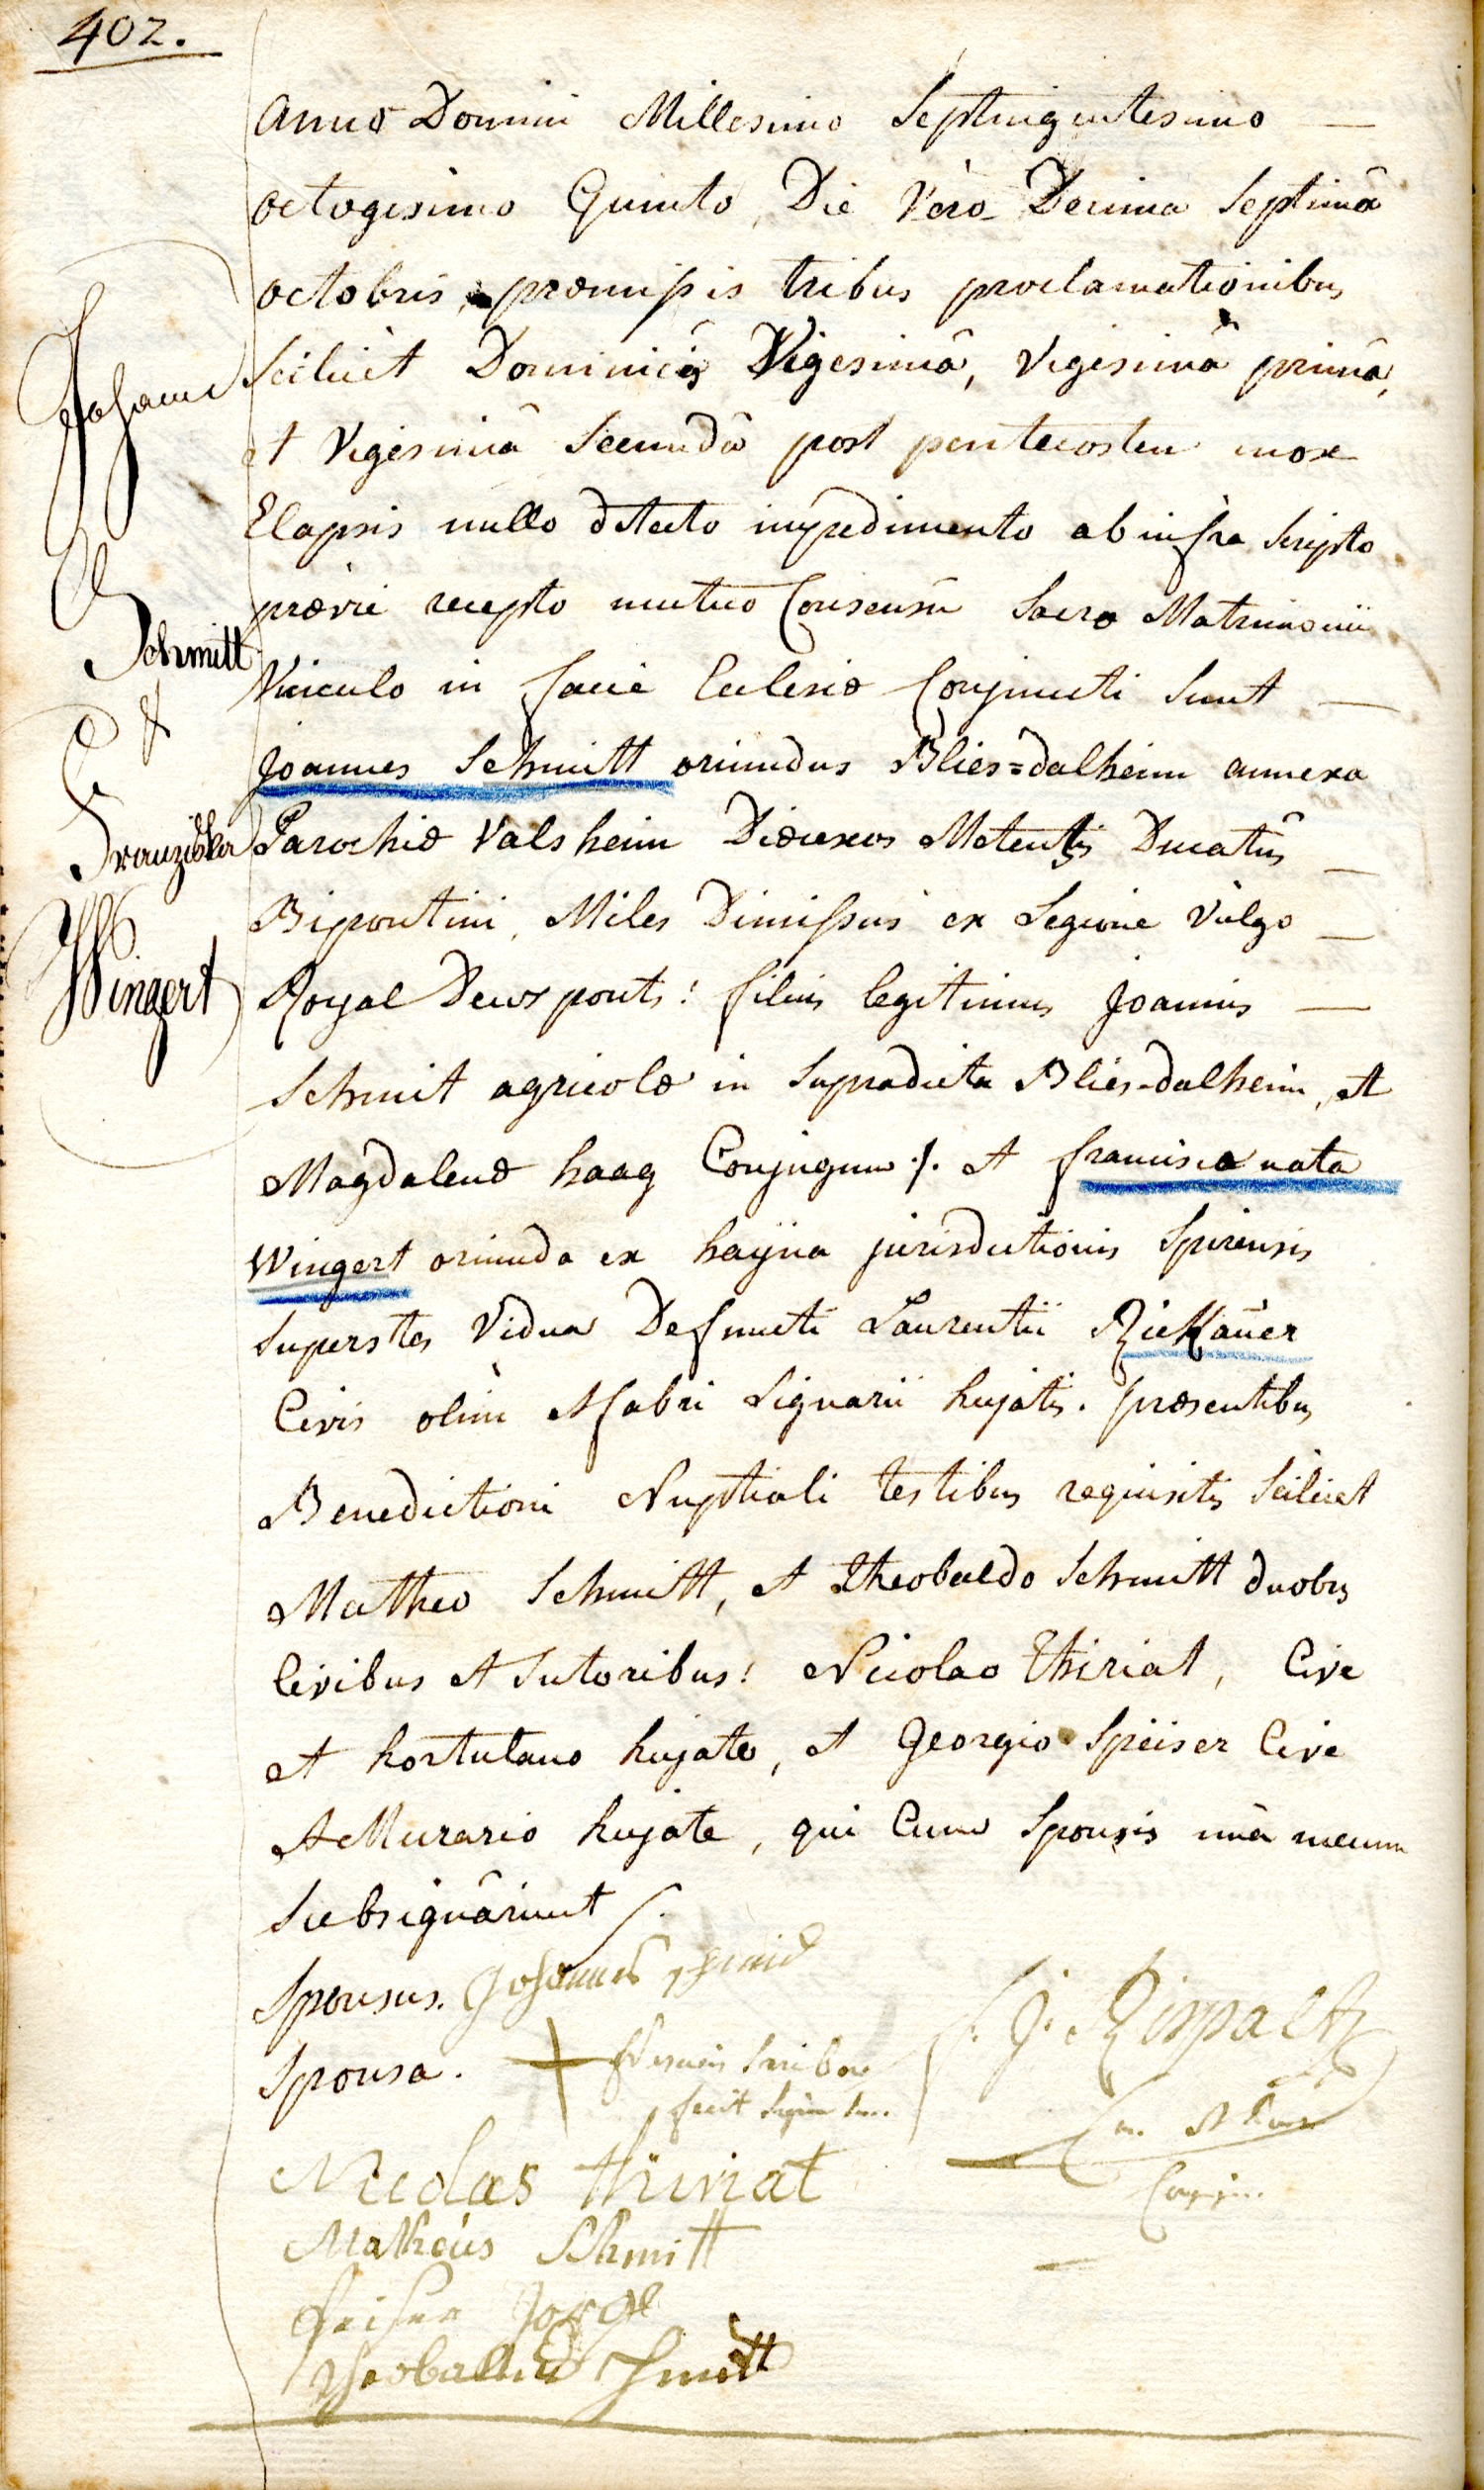 402.
Anno Domini Millesimo Septingentesimo —
octogesimo Quinto, Die Vero Decima Septimâ
octobris, præmissis tribus proclamationibus
Scilicet Dominicis Vigesimâ, Vigesimâ primâ,
et Vigesimâ Secundâ post pentecosten mox
Elapsis nullo detecto impedimento ab infra Scripto
prævie recepto mutuo Consensu Sacro Matrimonii
Vinculo in facie Ecclesiæ Conjuncti Sunt —
Joannes Schmitt oriundus Blies=dalheim annexa
Parochiæ Valsheim Diœceseos Metensis Ducatûs —
Bipontini, Miles Dimissus ex Legione Vulgo —
Royal Deux ponts: filius legitimus Joannis —
Schmit agricolæ in Supradicta Blies-dalheim, et
Magdalenæ haag Conjugum ./. et francisca nata
Wingert oriunda ex hayna jurisdictionis Spirensis
Superstes Vidua Defuncti Laurentii Rickauer
Civis olim et fabri Lignarii hujatis. præsentibus
Benedictioni Nuptiali testibus requisitis Scilicet
Matheo Schmitt, et Theobaldo Schmitt duobus
Civibus et Sutoribus: Nicolao Thiriat, Cive
et hortulano hujate, et Georgio Speiser Cive
et Murario hujate, qui Cum Sponsis unà mecum
Subsignârunt
Johann
Schmitt
&
Franziska
Wingert
Sponsus. Johannes Schmid
Sponsa. + Nesciens Scribere
fecit Signum
Nicolas thiriat
Matheus Schmitt
Speiser Jorge
Theobaldus Schmitt